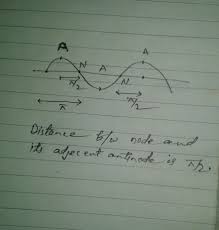 A A
N A N
π/2 π/2
π
Distance b/w node and
its adjecent antinode is π/2.